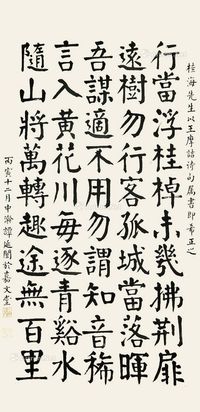 桂海先生以王摩詰詩句属書即希正之
行當浮桂棹未幾拂荆扉
遠樹勿行客孤城當落暉
吾謀適不用勿謂知音稀
言入黄花川每逐青谿水
隨山將萬轉趣途無百里
丙寅十二月中澣譚延闓於嘉文堂